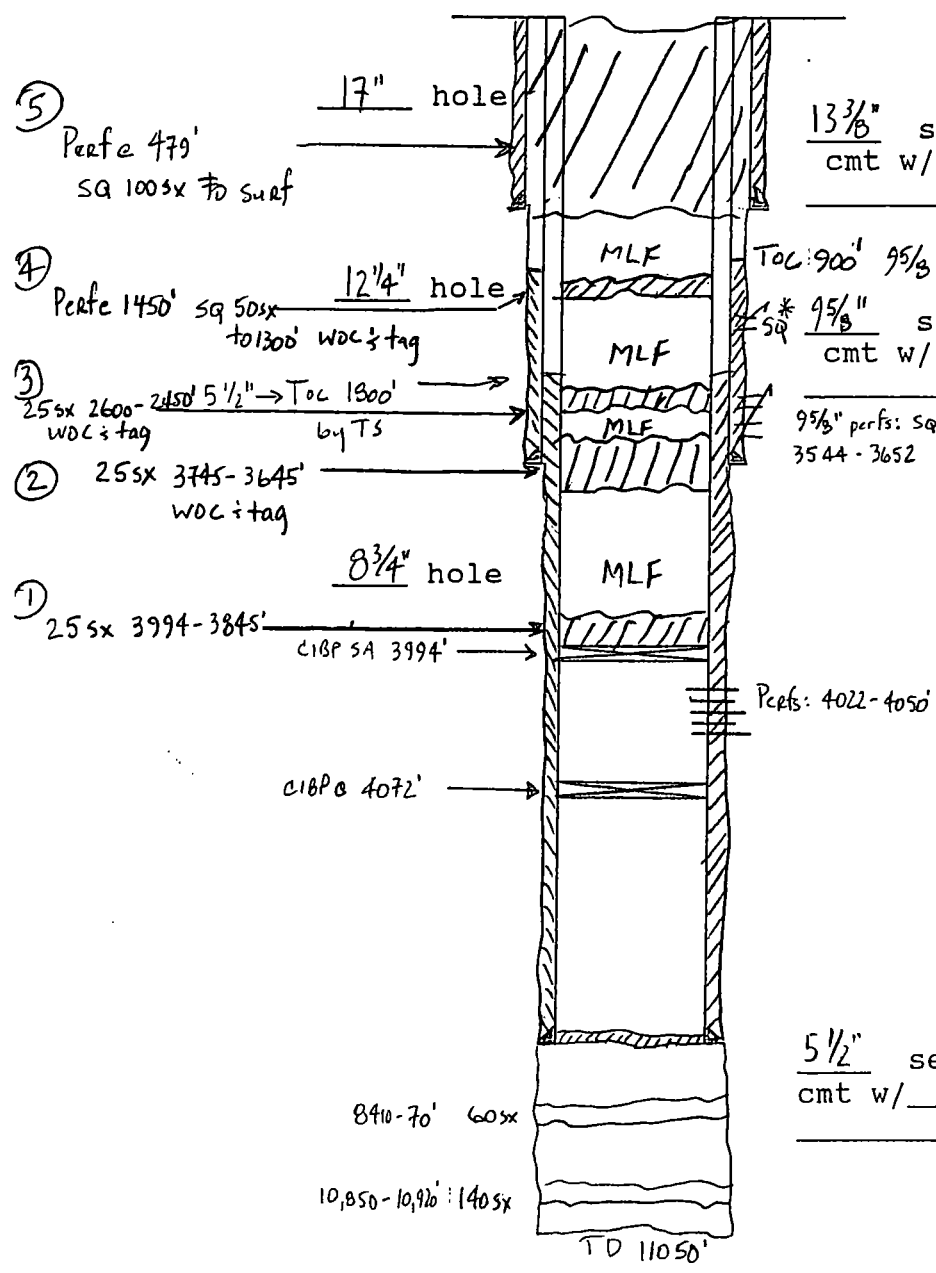 17" hole
⑤
Perf @ 479'
SQ 100sx to surf
13 3/8" s
cmt w/
MLF
TOC: 900' 9 5/8
④
12 1/4" hole
Perf @ 1450' SQ 50sx
to 1300' WOC & tag
SQ *
9 5/8" s
cmt w/
MLF
③
25sx 2600-2450' 5 1/2" → TOC 1800'
WOC & tag
by TS
MLF
9 5/8" perfs: SQ
3544-3652
② 25sx 3745-3645'
WOC & tag
8 3/4" hole
MLF
①
25sx 3994-3845'
CIBP SA 3994'
Perfs: 4022-4050'
CIBP @ 4072'
5 1/2" se
cmt w/
8410-70' 60sx
10,850-10,920': 140sx
TD 11050'